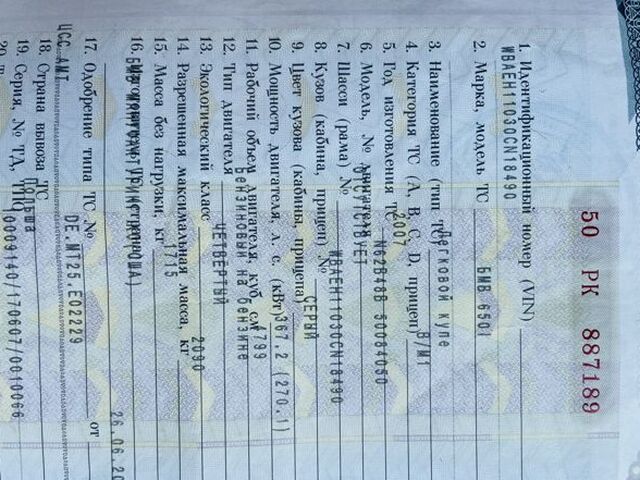 50 РК 887189
1. Идентификационный номер (VIN)
WBAEH11030CN18490
2. Марка, модель ТС БМВ 650I
3. Наименование (тип ТС) Легковой купе
4. Категория ТС (А, В, С, D, прицеп) В/М1
5. Год изготовления ТС 2007
6. Модель, № двигателя N62B48B 50084050
7. Шасси (рама) № ОТСУТСТВУЕТ
8. Кузов (кабина, прицеп) № WBAEH11030CN18490
9. Цвет кузова (кабины, прицепа) СЕРЫЙ
10. Мощность двигателя, л. с. (кВт) 367.2 (270.1)
11. Рабочий объем двигателя, куб. см 4799
12. Тип двигателя Бензиновый на бензине
13. Экологический класс ЧЕТВЕРТЫЙ
14. Разрешенная максимальная масса, кг 2090
15. Масса без нагрузки, кг 1715
16.
17. Одобрение типа ТС № DE.MT25.E02229 от 26.06.20
ЦСС АМТ
18. Страна вывоза ТС Польша
19. Серия, № ТД, ТПО 10009140/170607/0010066